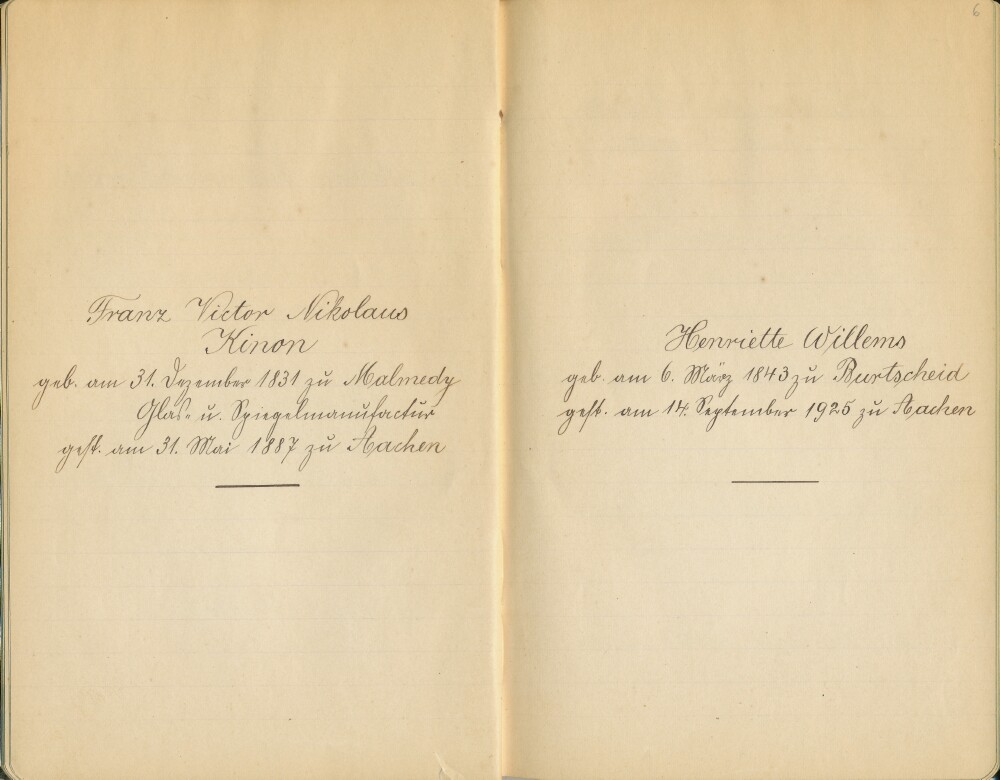 Franz Victor Nikolaus
Kinon
geb. am 31. Dezember 1831 zu Malmedy
Glas- u. Spiegelmanufactur
gest. am 31. Mai 1887 zu Aachen
6
Henriette Willems
geb. am 6. März 1843 zu Burtscheid
gest. am 14. September 1925 zu Aachen